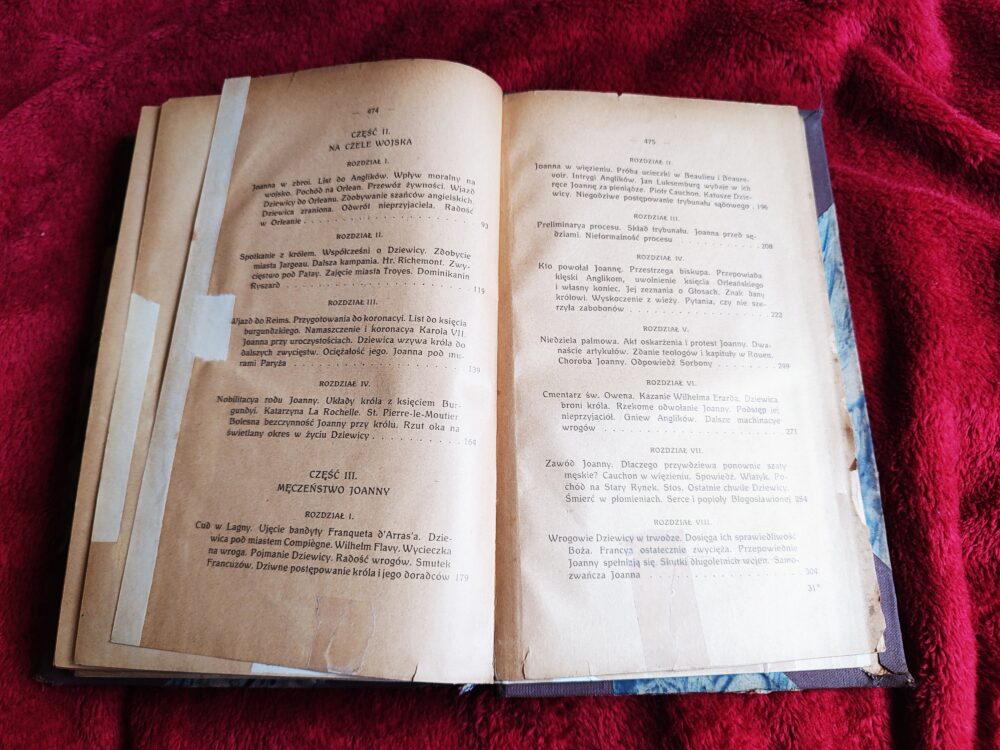 — 474 —
CZĘŚĆ II.
NA CZELE WOJSKA
ROZDZIAŁ I.
Joanna w zbroi. List do Anglików. Wpływ moralny na
wojsko. Pochód na Orlean. Przewóz żywności. Wjazd
Dziewicy do Orleanu. Zdobywanie szańców angielskich.
Dziewica zraniona. Odwrót nieprzyjaciela. Radość
w Orleanie . . . . . . . . . . . . . . . . . . 93
ROZDZIAŁ II.
Spotkanie z królem. Współcześni o Dziewicy. Zdobycie
miasta Jargeau. Dalsza kampania. Hr. Richemont. Zwy-
cięstwo pod Patay. Zajęcie miasta Troyes. Dominikanin
Ryszard . . . . . . . . . . . . . . . . . . 119
ROZDZIAŁ III.
Wjazd do Reims. Przygotowania do koronacyi. List do księcia
burgundzkiego. Namaszczenie i koronacya Karola VII.
Joanna przy uroczystościach. Dziewica wzywa króla do
dalszych zwycięstw. Ociężałość jego. Joanna pod mu-
rami Paryża . . . . . . . . . . . . . . . . . 139
ROZDZIAŁ IV.
Nobilitacya rodu Joanny. Układy króla z księciem Bur-
gundyi. Katarzyna La Rochelle. St. Pierre-le-Moutier
Bolesna bezczynność Joanny przy królu. Rzut oka na
świetlany okres w życiu Dziewicy . . . . . . . . 164
CZĘŚĆ III.
MĘCZEŃSTWO JOANNY
ROZDZIAŁ I.
Cud w Lagny. Ujęcie bandyty Franqueta d'Arras'a. Dzie-
wica pod miastem Compiègne. Wilhelm Flavy. Wycieczka
na wroga. Pojmanie Dziewicy. Radość wrogów. Smutek
Francuzów. Dziwne postępowanie króla i jego doradców 179
— 475 —
ROZDZIAŁ II.
Joanna w więzieniu. Próba ucieczki w Beaulieu i Beaure-
voir. Intrygi Anglików. Jan Luksemburg wydaje w ich
ręce Joannę za pieniądze. Piotr Cauchon. Katusze Dzie-
wicy. Niegodziwe postępowanie trybunału sądowego . 196
ROZDZIAŁ III.
Preliminarya procesu. Skład trybunału. Joanna przed sę-
dziami. Nieformalność procesu . . . . . . . . . 208
ROZDZIAŁ IV.
Kto powołał Joannę. Przestrzega biskupa. Przepowiada
klęski Anglikom, uwolnienie księcia Orleańskiego
i własny koniec. Jej zeznania o Głosach. Znak dany
królowi. Wyskoczenie z wieży. Pytania, czy nie sze-
rzyła zabobonów . . . . . . . . . . . . . . 222
ROZDZIAŁ V.
Niedziela palmowa. Akt oskarżenia i protest Joanny. Dwa-
naście artykułów. Zdanie teologów i kapituły w Rouen.
Choroba Joanny. Odpowiedź Sorbony . . . . . . .
ROZDZIAŁ VI.
Cmentarz św. Owena. Kazanie Wilhelma Erarda. Dziewica
broni króla. Rzekome odwołanie Joanny. Podstęp jej
nieprzyjaciół. Gniew Anglików. Dalsze machinacye
wrogów . . . . . . . . . . . . . . . . . . 271
ROZDZIAŁ VII.
Zawód Joanny. Dlaczego przywdziewa ponownie szaty
męskie? Cauchon w więzieniu. Spowiedź. Wiatyk. Po-
chód na Stary Rynek. Stos. Ostatnie chwile Dziewicy.
Śmierć w płomieniach. Serce i popioły Błogosławionej 284
ROZDZIAŁ VIII.
Wrogowie Dziewicy w trwodze. Dosięga ich sprawiedliwość
Boża. Francya ostatecznie zwycięża. Przepowiednie
Joanny spełniają się. Skutki długoletnich wojen. Samo-
zwańcza Joanna . . . . . . . . . . . . . . 304
31*